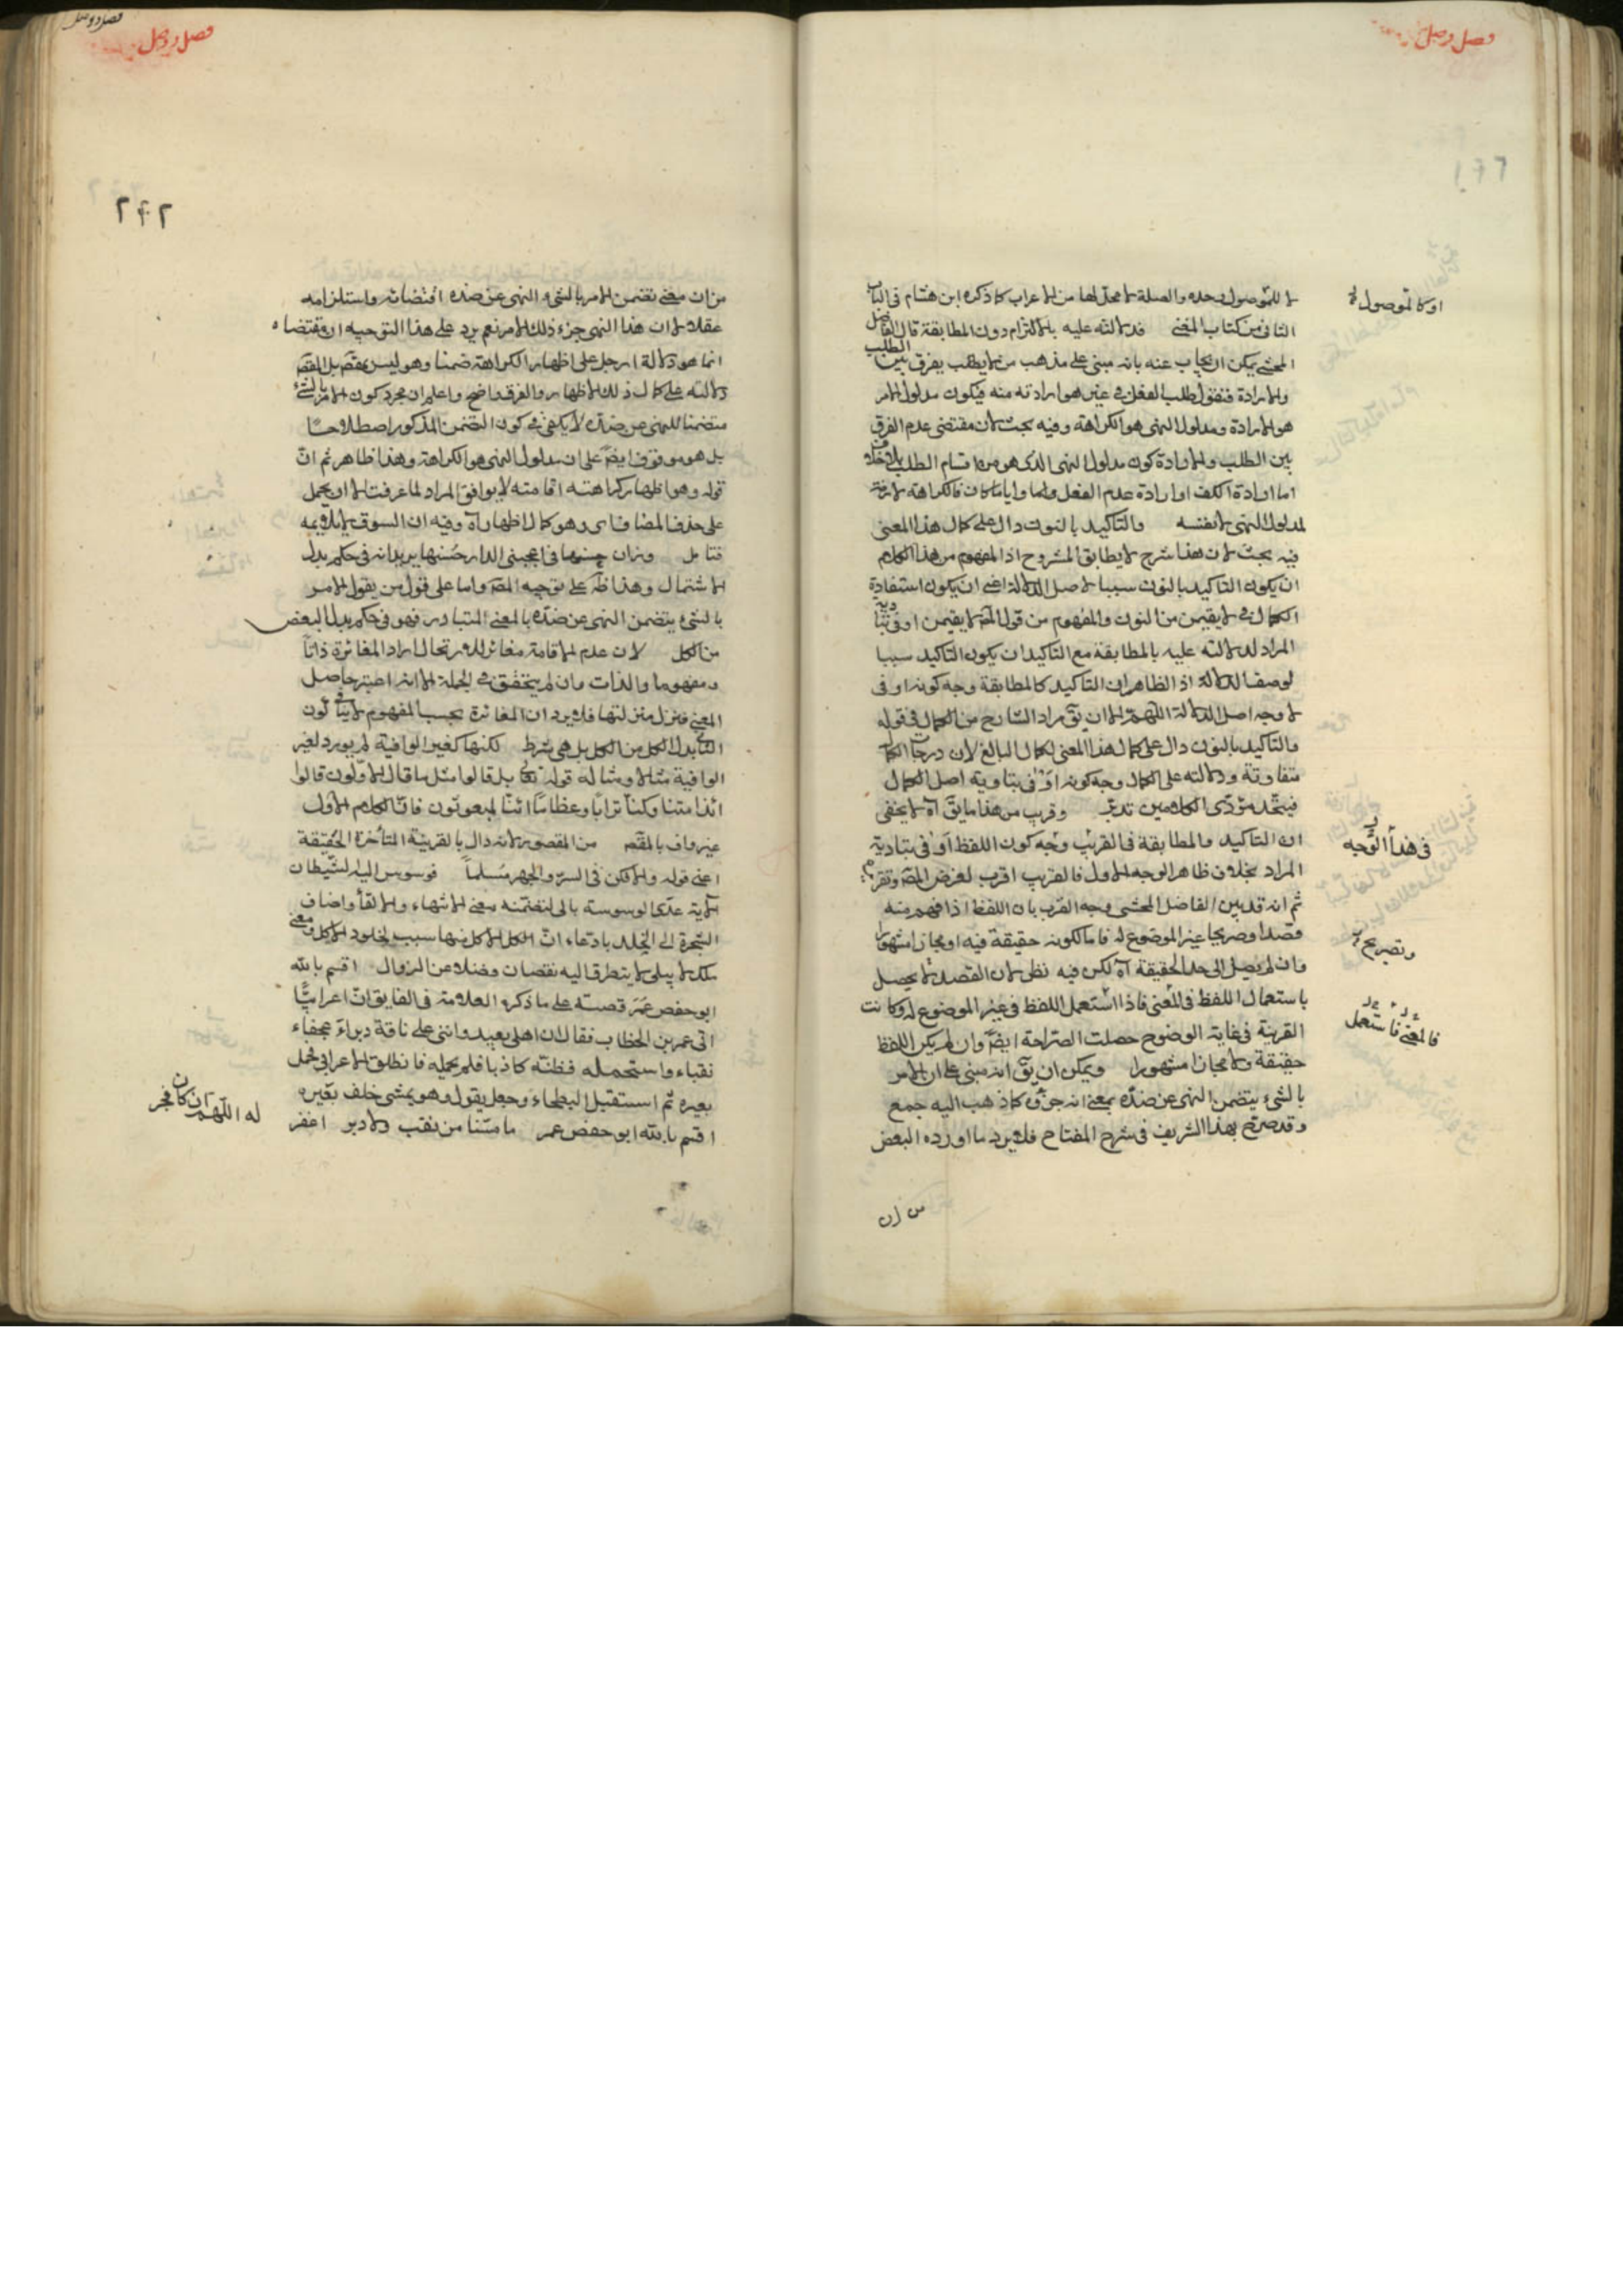 فصل وصل
لا للموصول وحده والصلة لا محل لها من الاعراب كما ذكره ابن هشام فى الباب
الثانى من كتاب المغنى فدلالته عليه بالالتزام دون المطابقة قال الفاضل
المحشى يمكن ان يجاب عنه بانه مبنى على مذهب من لا يفرق بين الطلب
والارادة فنقول طلب الفعل من غير هو ارادته منه فيكون مدلول الامر
هو الارادة ومدلول النهى هو الكراهة وفيه بحث لان مقتضى عدم الفرق
بين الطلب والارادة كون مدلول النهى الذى هو من اقسام الطلب بلا خلاف
اما ارادة الكف او ارادة عدم الفعل واياما كان فالكراهة لازمة
لمدلول النهى لا نفسه والتأكيد بالنون دال على كمال هذا المعنى
فيه بحث لان هذا شرح لا يطابق المشروح اذ المفهوم من هذا الكلام
ان يكون التأكيد بالنون سببا لاصل الدلالة اعنى ان يكون استفادة
الكمال فى لا يقيمن من النون والمفهوم من قول المص لا يقيمن اوفى بتأدية
المراد لدلالته عليه بالمطابقة مع التأكيد ان يكون التأكيد سببا
لوصف الدلالة اذ الظاهر ان التأكيد كالمطابقة وجه كونه اوفى
لا وجه اصل الدلالة اللهم الا ان يق مراد الشارح من الكمال فى قوله
والتأكيد بالنون دال على كمال هذا المعنى الكمال البالغ لان درجات الكمال
متفاوتة ودلالته على الكمال وجه كونه اوفى بتأدية اصل الكمال
فيتحد مؤدى الكلامين تدبر وقريب من هذا ما يق آه لا يخفى
ان التأكيد والمطابقة فى القريب وجه كون اللفظ اوفى بتأدية
المراد بخلاف ظاهر الوجه الاول فالقريب اقرب لغرض المص وتقرير
ثم انه قد بين الفاضل المحشى وجه القرب بان اللفظ اذا فهم منه
قصدا وصريحا غير الموضوع له فاما لكونه حقيقة فيه او مجازا مشهورا
وان لم يصل الى حد الحقيقة آه لكن فيه نظر لان القصد لا يحصل
باستعمال اللفظ فى المعنى فاذا استعمل اللفظ فى غير الموضوع له وكانت
القرينة فى غاية الوضوح حصلت الصراحة ايضا وان لم يكن اللفظ
حقيقة ولا مجازا مشهورا ويمكن ان يق انه مبنى على ان الامر
بالشئ يتضمن النهى عن ضده بمعنى انه جزؤه كما ذهب اليه جمع
وقد صرح بهذا الشريف فى شرح المفتاح فلا يرد ما اورده البعض
من ان
او كالموصول
فى هذا الوجه
وتصريح
فالمعنى فاستعمل
فصل وصل
فصل ووصل
٢٤٢
من ان معنى تضمن الامر بالشئ النهى عن ضده اقتضائه واستلزامه
عقلا لا ان هذا النهى جزء ذلك الامر نعم يرد على هذا التوجيه ان مقتضاه
انما هو دلالة ارحل على اظهار الكراهة ضمنا وهو ليس بمقصود بل المقصود
دلالته على كمال ذلك الاظهار والفرق واضح واعلم ان مجرد كون الامر بالشئ
متضمنا للنهى عن ضده لا يكفى فى كون التضمن المذكور اصطلاحيا
بل هو موقوف ايضا على ان مدلول النهى هو الكراهة وهذا ظاهر ثم ان
قوله وهو اظهار كراهته اقامته لا يوافق المراد لما عرفت الا ان يحمل
على حذف المضاف اى وهو كمال اظهار آه وفيه ان السوق لا يلايمه
فتامل وزان حسنها فى اعجبنى الدار حسنها يريد انه فى حكم بدل
الاشتمال وهذا ظ على توجيه المص واما على قول من يقول الامر
بالشئ يتضمن النهى عن ضده بالمعنى المتبادر فهو فى حكم بدل البعض
من الكل لان عدم الاقامة مغائر للارتحال اراد المغائرة ذاتا
ومفهوما والذات وان لم يتحقق فى الجملة الا انه اعتبر حاصل
المعنى فنزل منزلتها فلا يرد ان المغائرة بحسب المفهوم لا ينافى كون
الثانى بدل الكل من الكل بل هى شرط لكنها كغير الوافية لم يورد لغير
الوافية مثالا ومثاله قوله تعالى بل قالوا مثل ما قال الاولون قالوا
ائذا متنا وكنا ترابا وعظاما ائنا لمبعوثون فان الكلام الاول
غير واف بالمقصود من المقصور لانه دال بالقرينة المتأخرة الحقيقة
اعنى قوله والا فكن فى السر والجهر مسلما فوسوس اليه الشيطان
الاية عدى الوسوسة بالى لتضمنه معنى الانتهاء والالقاء واضاف
الشجرة الى الخلد بادعاء ان اكل الاكل منها سبب لخلود الاكل ومعنى
ملك لا يبلى لا يتطرق اليه نقصان وفضلا عن الزوال اقسم بالله
ابو حفص عمر قصته على ما ذكره العلامة فى الفايق ان اعرابيا
اتى عمر بن الخطاب فقال ان اهلى بعيد وانى على ناقة دبراء عجفاء
نقباء واستحمله فظنه كاذبا فلم يحمله فانطلق الاعرابى فحمل
بعيره ثم استقبل البطحاء وجعل يقول وهو يمشى خلف بعيره
اقسم بالله ابو حفص عمر ما مسها من نقب ولا دبر اغفر
له اللهم ان كان فجر